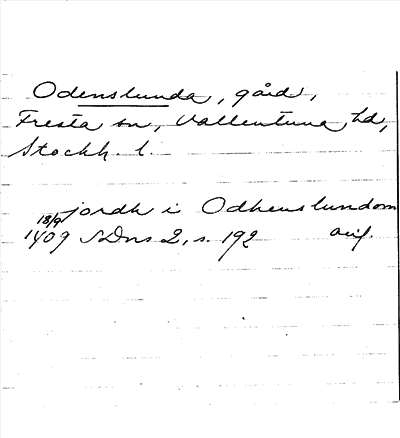 Odenslunda, gård,
Fresta sn, Vallentuna hd,
Stockh. l.
jordh i Odhenslundom
18/9 1409 SDns 2, s. 192 avs.